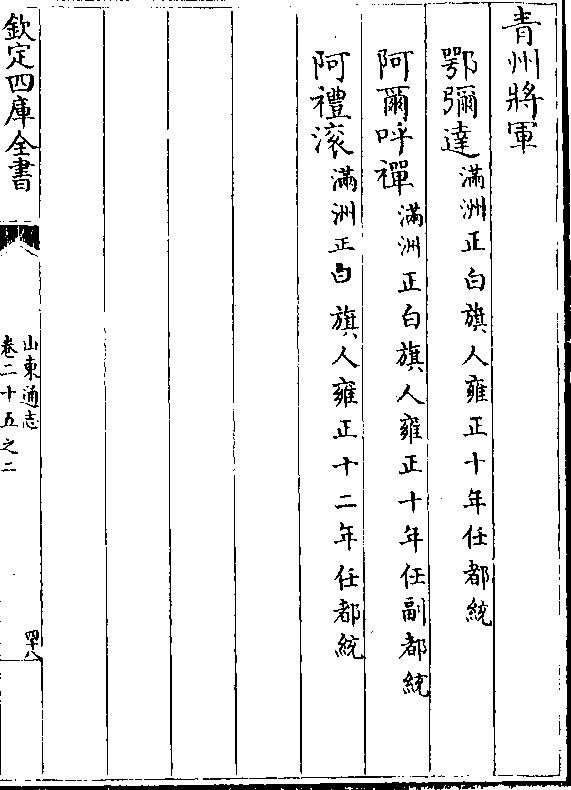 青州將軍
鄂彌達滿洲正白旗人雍正十年任都統
阿爾呼禪滿洲正白旗人雍正十年任副都統
阿禮滚滿洲正白旗人雍正十二年任都統
欽定四庫全書
山東通志
卷二十五之二
四十八